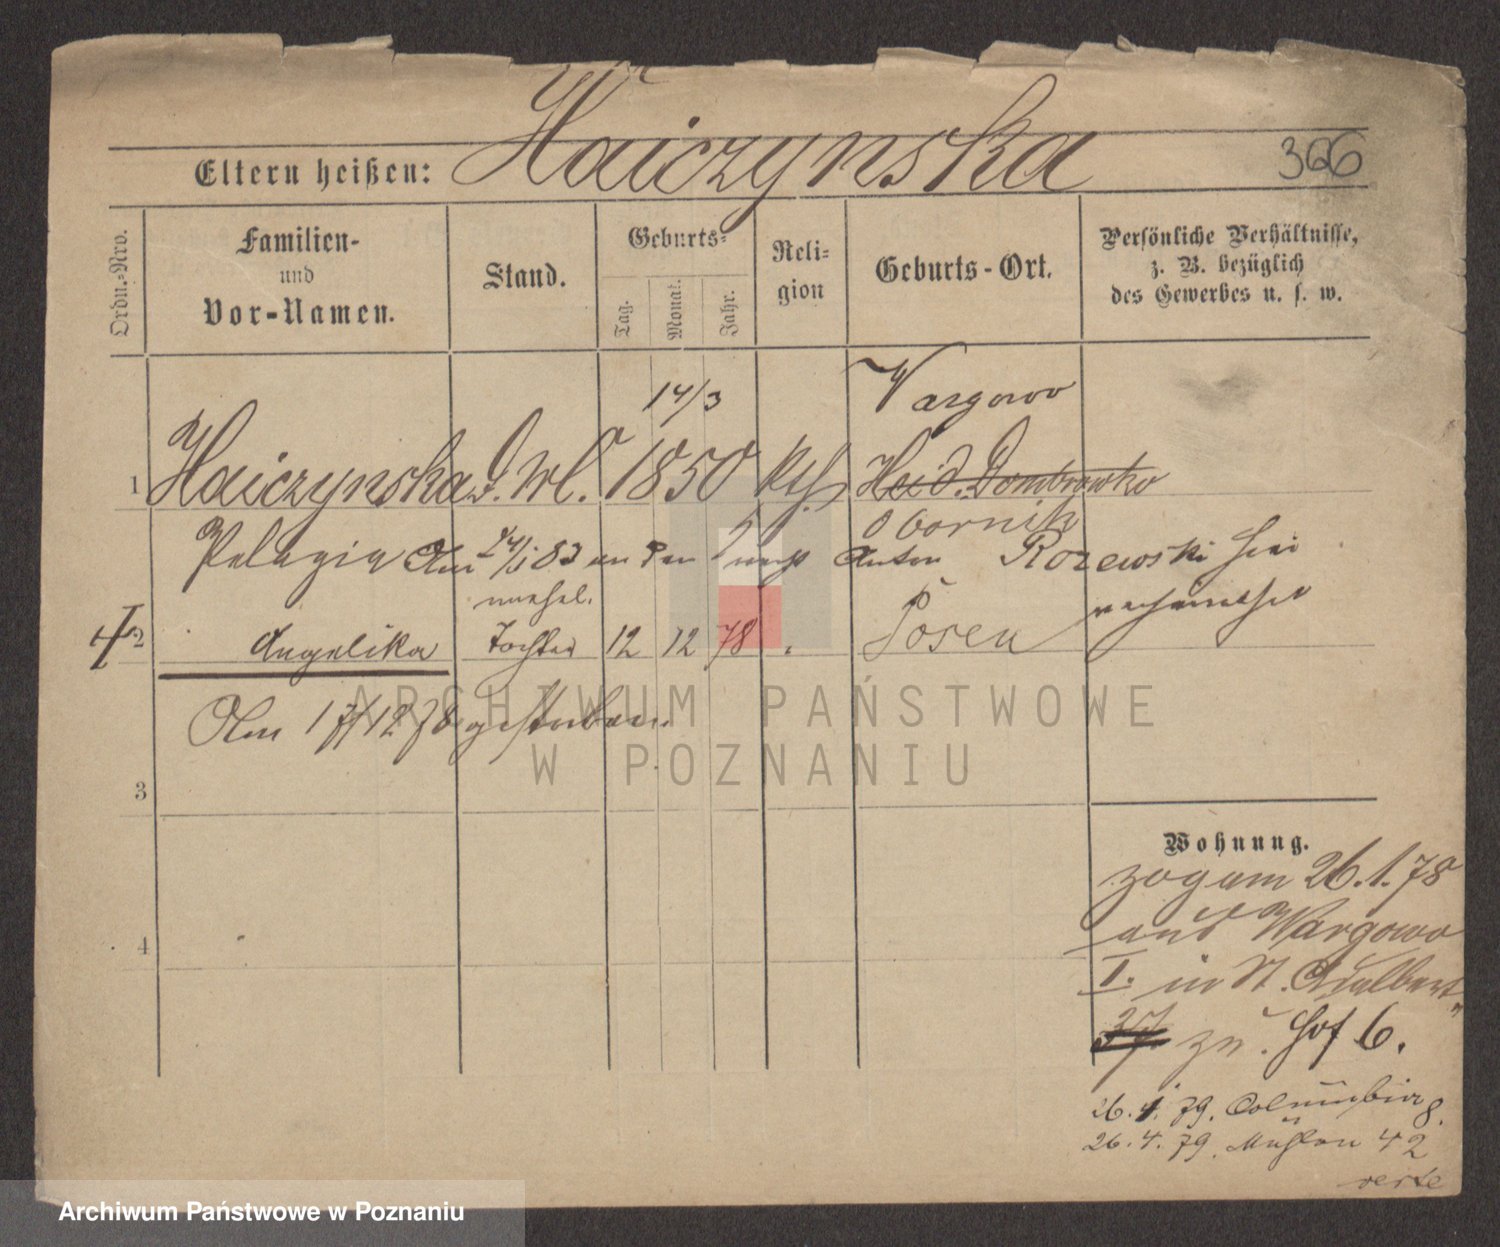 Haiczynska
Eltern heißen:
366
Ordn.-Nro.
Familien-
und
Vor-Namen.
Stand.
Geburts-
Tag.
Monat.
Jahr.
Reli-
gion
Geburts-Ort.
Persönliche Verhältnisse,
z. B. bezüglich
des Gewerbes u. s. w.
14/3
Wargowo
1 Haiczynska 1850 Kth Haid. Dombrowko
Obornik
Pelagia Am 24/1 83 an den Anton Rozewski hier
unehel. verheirathet
2 Angelika Tochter 12 12 78 Posen
Am 17/12 78 gestorben
3
4
Wohnung.
zog am 26.1.78
aus Wargowo
I. in St. Adalbert
37 zu. Hof 6.
26.1.79. Columbia 8.
26.4.79. Mühlen 42
verte
ARCHIWUM PAŃSTWOWE
W POZNANIU
Archiwum Państwowe w Poznaniu